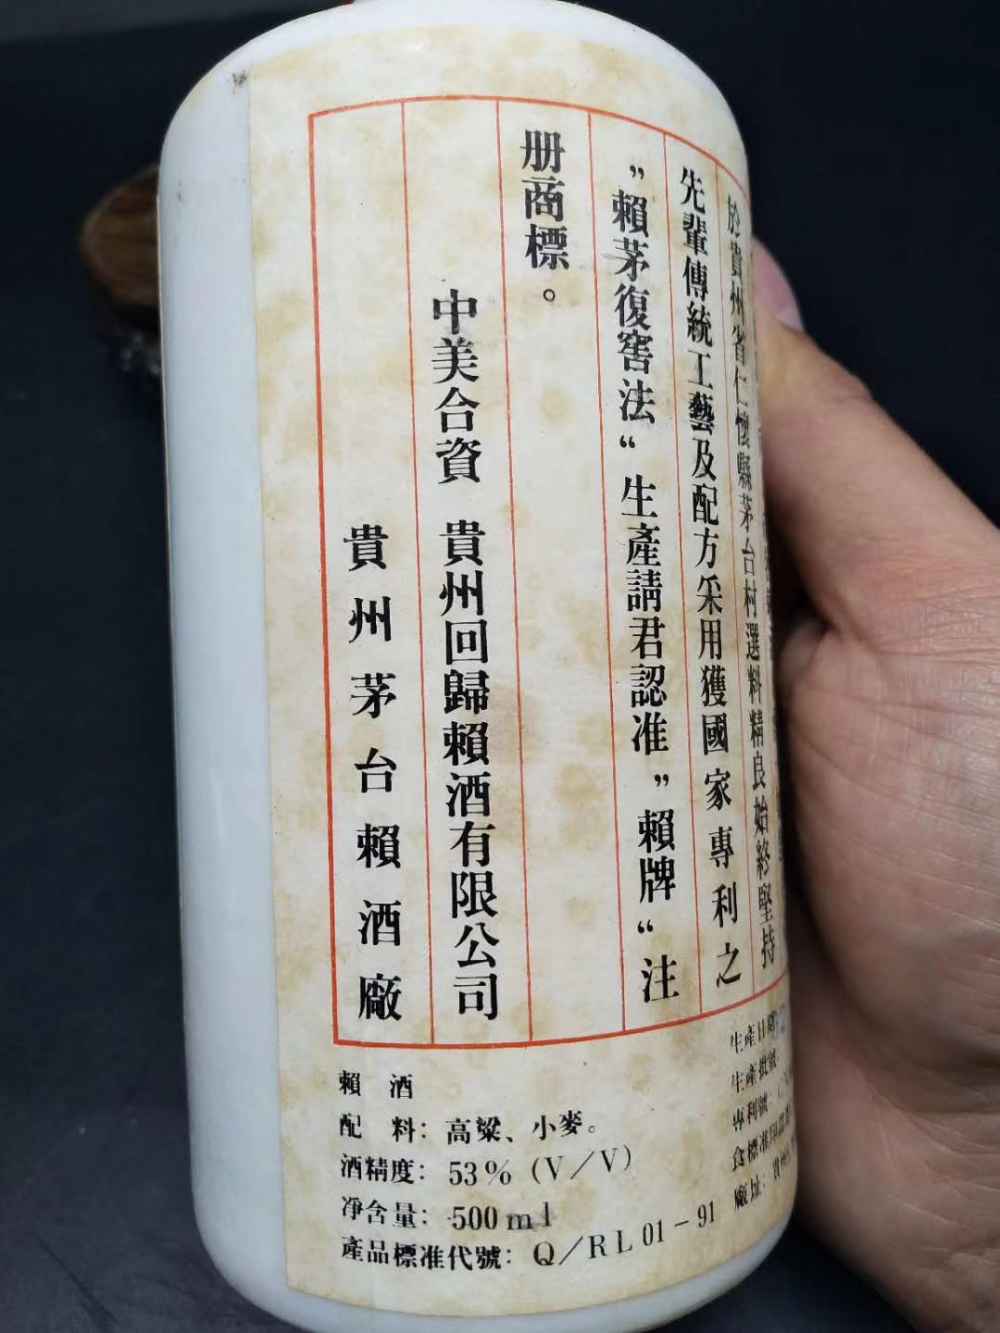 於貴州省仁懷縣茅台村選料精良始終堅持
先輩傳統工藝及配方采用獲國家專利之
”賴茅復窖法“生產請君認准”賴牌“注
册商標。
中美合資 貴州回歸賴酒有限公司
貴州茅台賴酒廠
賴 酒
配 料：高粱、小麥。
酒精度：53％（V／V）
凈含量：500ml
產品標准代號：Q／RL 01－91
生產日期
生產批號
專利號
食標准
廠址：貴州